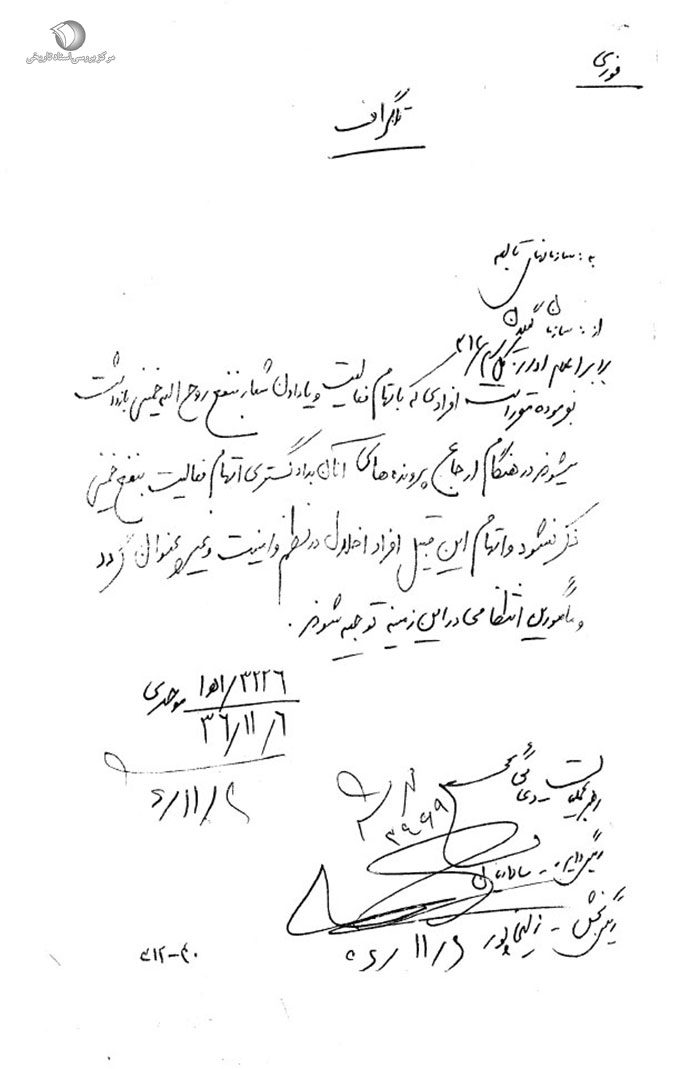 مرکز بررسی اسناد تاریخی
فوری
تلگراف
به: سازمانهای تابعه
از: سازمان گیلان
۳۱۲
برابر اعلام اداره کل سوم
فرموده مقرر است افرادی که باتهام فعالیت و یا دادن شعار بنفع روح اله خمینی بازداشت
میشوند در هنگام ارجاع پرونده های آنان بدادگستری اتهام فعالیت بنفع خمینی
ذکر نشود و اتهام این قبیل افراد اخلال در نظم و امنیت و غیره عنوان گردد
و مأمورین انتظامی در این زمینه توجیه شوند.
۳۲۲۶/ ۱ھ۱ موحدی
۳۶/۱۱/۶
۶/۱۱/
رهبر عملیات -
۳۹۶۹
رئیس دایره -
رئیس بخش -
۶/۱۱/
۳۱۲-۴۰